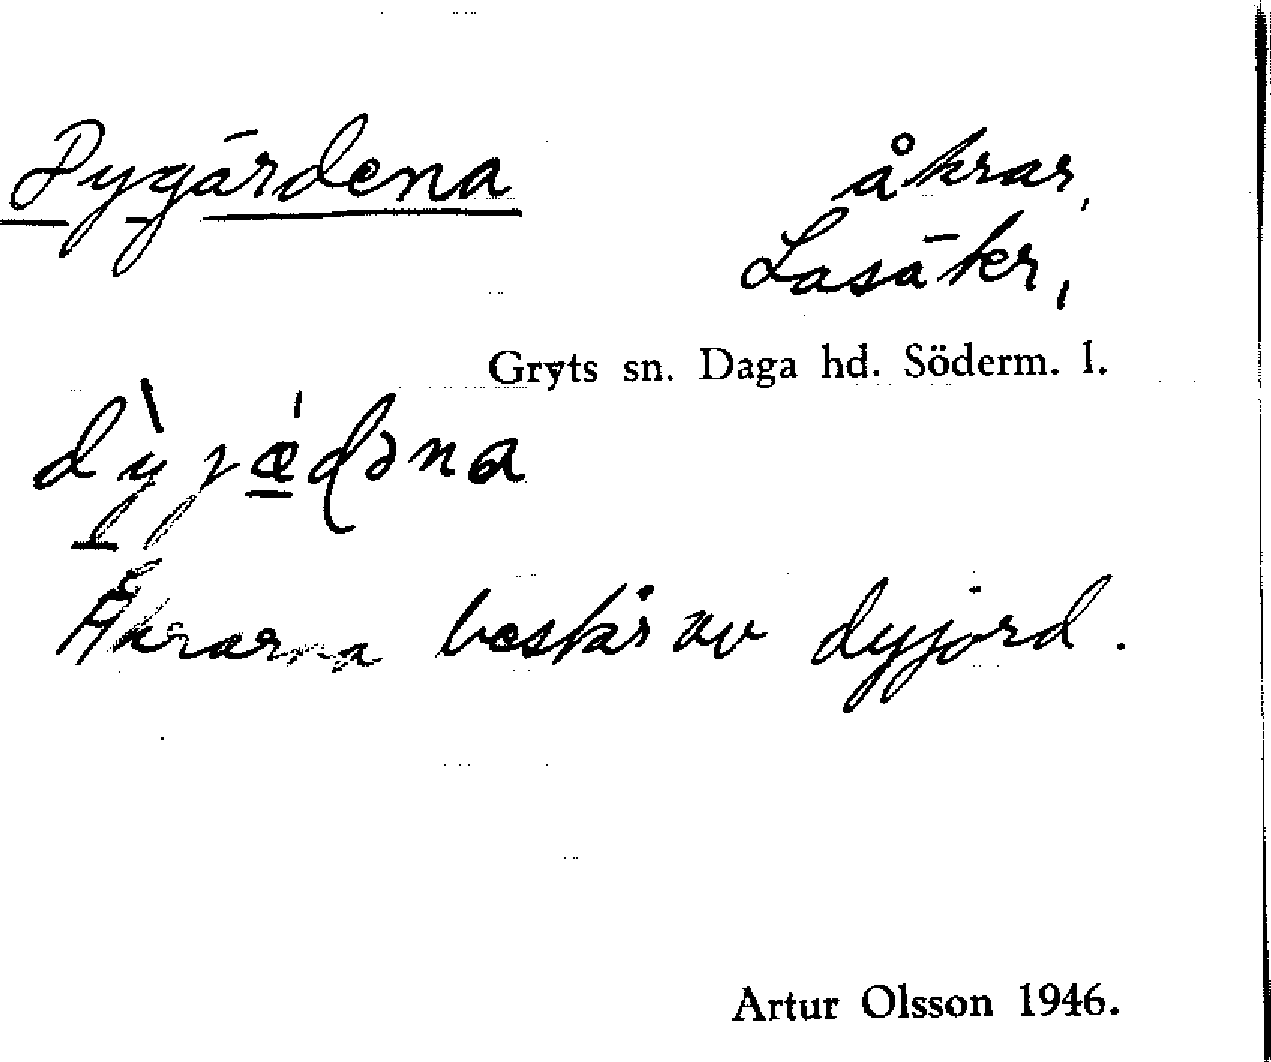 Dygärdena
åkrar,
Lasäker,
Gryts sn. Daga hd. Söderm. l.
dỳjæ̀dəna
Åkrarna består av dyjord.
Artur Olsson 1946.